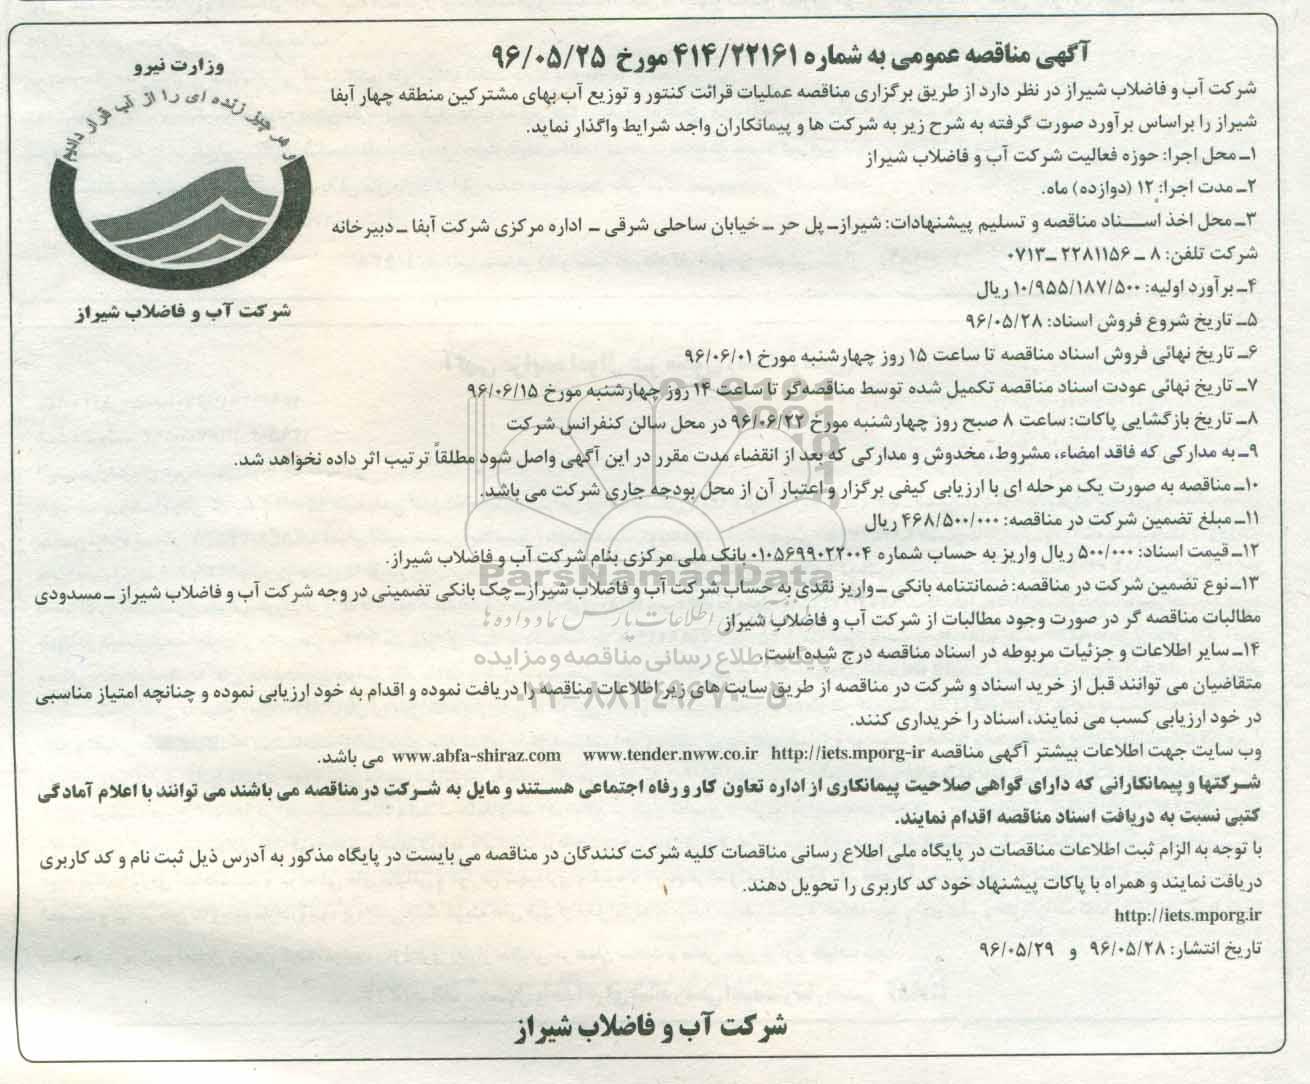 آگهی مناقصه عمومی به شماره ۴۱۴/۲۲۱۶۱ مورخ ۹۶/۰۵/۲۵
وزارت نیرو
و هر چیز زنده ای را از آب قرار دادیم
شرکت آب و فاضلاب شیراز
شرکت آب و فاضلاب شیراز در نظر دارد از طریق برگزاری مناقصه عملیات قرائت کنتور و توزیع آب بهای مشترکین منطقه چهار آبفا
شیراز را براساس برآورد صورت گرفته به شرح زیر به شرکت ها و پیمانکاران واجد شرایط واگذار نماید.
۱ـ محل اجرا: حوزه فعالیت شرکت آب و فاضلاب شیراز
۲ـ مدت اجرا: ۱۲ (دوازده) ماه.
۳ـ محل اخذ اسـناد مناقصه و تسلیم پیشنهادات: شیرازـ پل حر ـ خیابان ساحلی شرقی ـ اداره مرکزی شرکت آبفا ـ دبیرخانه
شرکت تلفن: ۸ ـ ۲۲۸۱۱۵۶ ـ ۰۷۱۳
۴ـ برآورد اولیه: ۱۰/۹۵۵/۱۸۷/۵۰۰ ریال
۵ـ تاریخ شروع فروش اسناد: ۹۶/۰۵/۲۸
۶ـ تاریخ نهائی فروش اسناد مناقصه تا ساعت ۱۵ روز چهارشنبه مورخ ۹۶/۰۶/۰۱
۷ـ تاریخ نهائی عودت اسناد مناقصه تکمیل شده توسط مناقصه گر تا ساعت ۱۴ روز چهارشنبه مورخ ۹۶/۰۶/۱۵
۸ـ تاریخ بازگشایی پاکات: ساعت ۸ صبح روز چهارشنبه مورخ ۹۶/۰۶/۲۲ در محل سالن کنفرانس شرکت
۹ـ به مدارکی که فاقد امضاء، مشروط، مخدوش و مدارکی که بعد از انقضاء مدت مقرر در این آگهی واصل شود مطلقاً ترتیب اثر داده نخواهد شد.
۱۰ـ مناقصه به صورت یک مرحله ای با ارزیابی کیفی برگزار و اعتبار آن از محل بودجه جاری شرکت می باشد.
۱۱ـ مبلغ تضمین شرکت در مناقصه: ۴۶۸/۵۰۰/۰۰۰ ریال
۱۲ـ قیمت اسناد: ۵۰۰/۰۰۰ ریال واریز به حساب شماره ۰۱۰۵۶۹۹۰۲۲۰۰۴ بانک ملی مرکزی بنام شرکت آب و فاضلاب شیراز.
ParsNamadData
۱۳ـ نوع تضمین شرکت در مناقصه: ضمانتنامه بانکی ـ واریز نقدی به حساب شرکت آب و فاضلاب شیرازـ چک بانکی تضمینی در وجه شرکت آب و فاضلاب شیراز ـ مسدودی
مطالبات مناقصه گر در صورت وجود مطالبات از شرکت آب و فاضلاب شیراز
۱۴ـ سایر اطلاعات و جزئیات مربوطه در اسناد مناقصه درج شده است.
پایگاه اطلاع رسانی مناقصه و مزایده
متقاضیان می توانند قبل از خرید اسناد و شرکت در مناقصه از طریق سایت های زیر اطلاعات مناقصه را دریافت نموده و اقدام به خود ارزیابی نموده و چنانچه امتیاز مناسبی
۰۲۱-۸۸۳۴۹۶۷۰-۵
در خود ارزیابی کسب می نمایند، اسناد را خریداری کنند.
وب سایت جهت اطلاعات بیشتر آگهی مناقصه http://iets.mporg-ir www.tender.nww.co.ir www.abfa-shiraz.com می باشد.
شرکتها و پیمانکارانی که دارای گواهی صلاحیت پیمانکاری از اداره تعاون کار و رفاه اجتماعی هستند و مایل به شرکت در مناقصه می باشند می توانند با اعلام آمادگی
کتبی نسبت به دریافت اسناد مناقصه اقدام نمایند.
با توجه به الزام ثبت اطلاعات مناقصات در پایگاه ملی اطلاع رسانی مناقصات کلیه شرکت کنندگان در مناقصه می بایست در پایگاه مذکور به آدرس ذیل ثبت نام و کد کاربری
دریافت نمایند و همراه با پاکات پیشنهاد خود کد کاربری را تحویل دهند.
http://iets.mporg.ir
تاریخ انتشار: ۹۶/۰۵/۲۸ و ۹۶/۰۵/۲۹
شرکت آب و فاضلاب شیراز